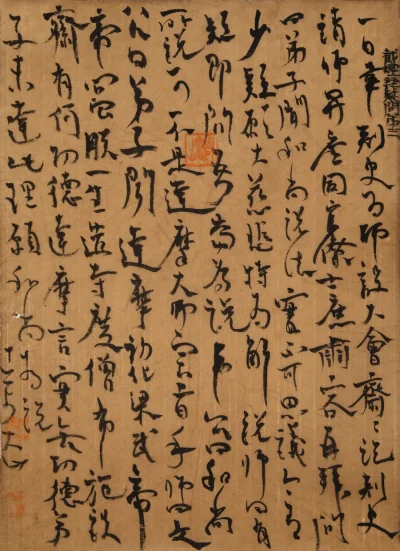 一日韋刺史為師設大會齋〻訖刺史
請師昇座同官僚士庶肅容再拜問
曰弟子聞和尚說法實不可思議今有
少疑願大慈悲特為解說師曰有
疑即問吾當為說韋公曰和尚
所說可不是達摩大師宗旨乎師曰是
公曰弟子聞達摩初化梁武帝
帝問朕一生造寺度僧布施設
齋有何功德達摩言實無功德弟
子未達此理願和尚為說